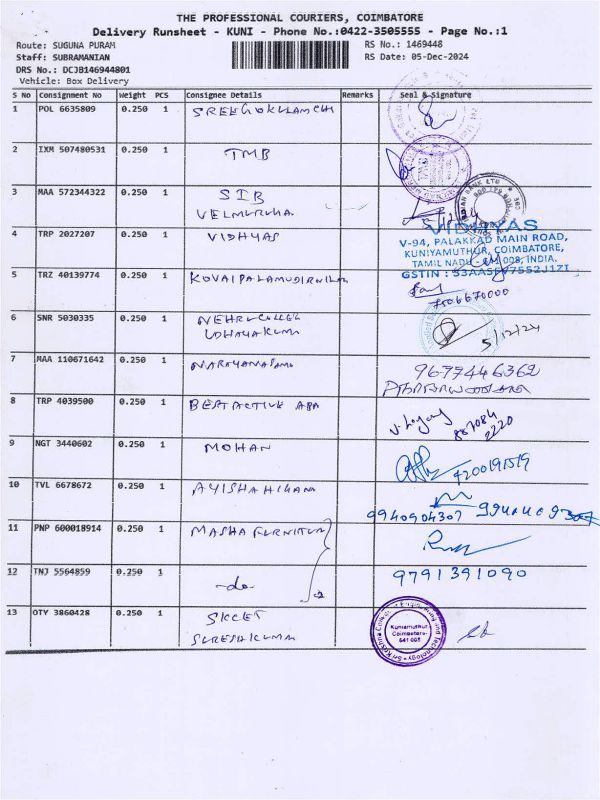 THE PROFESSIONAL COURIERS, COIMBATORE
Delivery Runsheet - KUNI - Phone No.:0422-3505555 - Page No.:1
Route: SUGUNA PURAM
RS No.: 1469448
Staff: SUBRAMANIAN
RS Date: 05-Dec-2024
DRS No.: DCJB146944801
Vehicle: Box Delivery
S No Consignment No Weight PCS Consignee Details Remarks Seal & Signature
1 POL 6635809 0.250 1
2 IXM 507480531 0.250 1 TMB
3 MAA 572344322 0.250 1 SIB
VELMURUGA
4 TRP 2027207 0.250 1 VIDHYAS
VIDHYAS
V-94, PALAKKAD MAIN ROAD,
KUNIYAMUTHUR, COIMBATORE,
TAMIL NADU - 008, INDIA.
5 TRZ 40139774 0.250 1 KOVAIPALAMUDIRNILAM
7506670000
6 SNR 5030335 0.250 1 NEHRU COLLEG
UDHAYAKUMA
5/12/24
7 MAA 110671642 0.250 1 NARAYANASAMI
9677446362
8 TRP 4039500 0.250 1 ABA
887084
2220
9 NGT 3440602 0.250 1 MOHAN
4200191519
10 TVL 6678672 0.250 1
9940904307
11 PNP 600018914 0.250 1 MASHA FURNITUR
12 TNJ 5564859 0.250 1 -do-
2
9791391090
13 OTY 3860428 0.250 1 SKCET
SURESHKUMA
Kuniamuthur
Coimbatore-
641 008